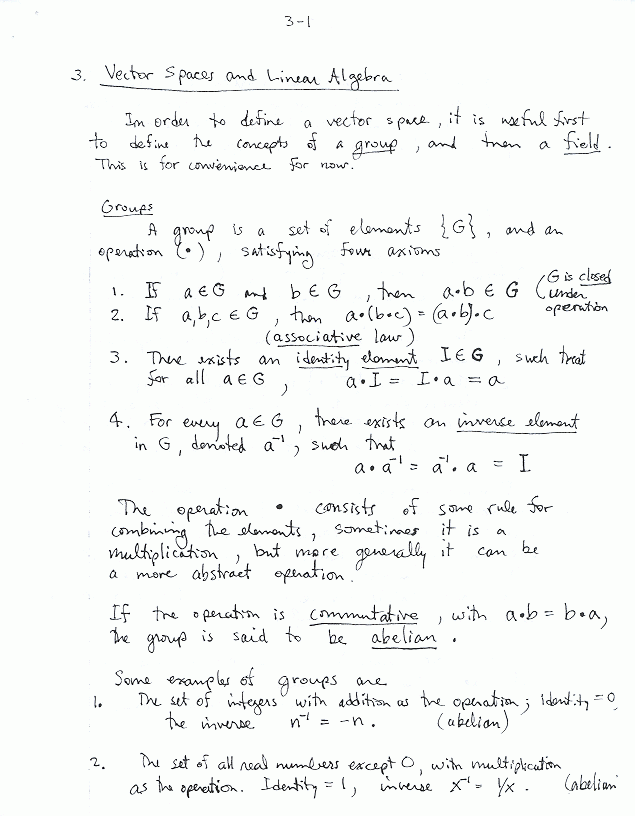 3-1
3. Vector Spaces and Linear Algebra
In order to define a vector space, it is useful first
to define the concepts of a group, and then a field.
This is for convenience for now.
Groups
A group is a set of elements {G}, and an
operation (•), satisfying four axioms
1. If a ∈ G and b ∈ G, then a•b ∈ G (G is closed
under
operation
2. If a,b,c ∈ G, then a•(b•c) = (a•b)•c
(associative law)
3. There exists an identity element I ∈ G, such that
for all a ∈ G, a•I = I•a = a
4. For every a ∈ G, there exists an inverse element
in G, denoted a⁻¹, such that
a•a⁻¹ = a⁻¹•a = I
The operation • consists of some rule for
combining the elements, sometimes it is a
multiplication, but more generally it can be
a more abstract operation.
If the operation is commutative, with a•b = b•a,
the group is said to be abelian.
Some examples of groups are
1. The set of integers with addition as the operation; identity = 0
the inverse n⁻¹ = -n. (abelian)
2. The set of all real numbers except 0, with multiplication
as the operation. Identity = 1, inverse x⁻¹ = 1/x. (abelian